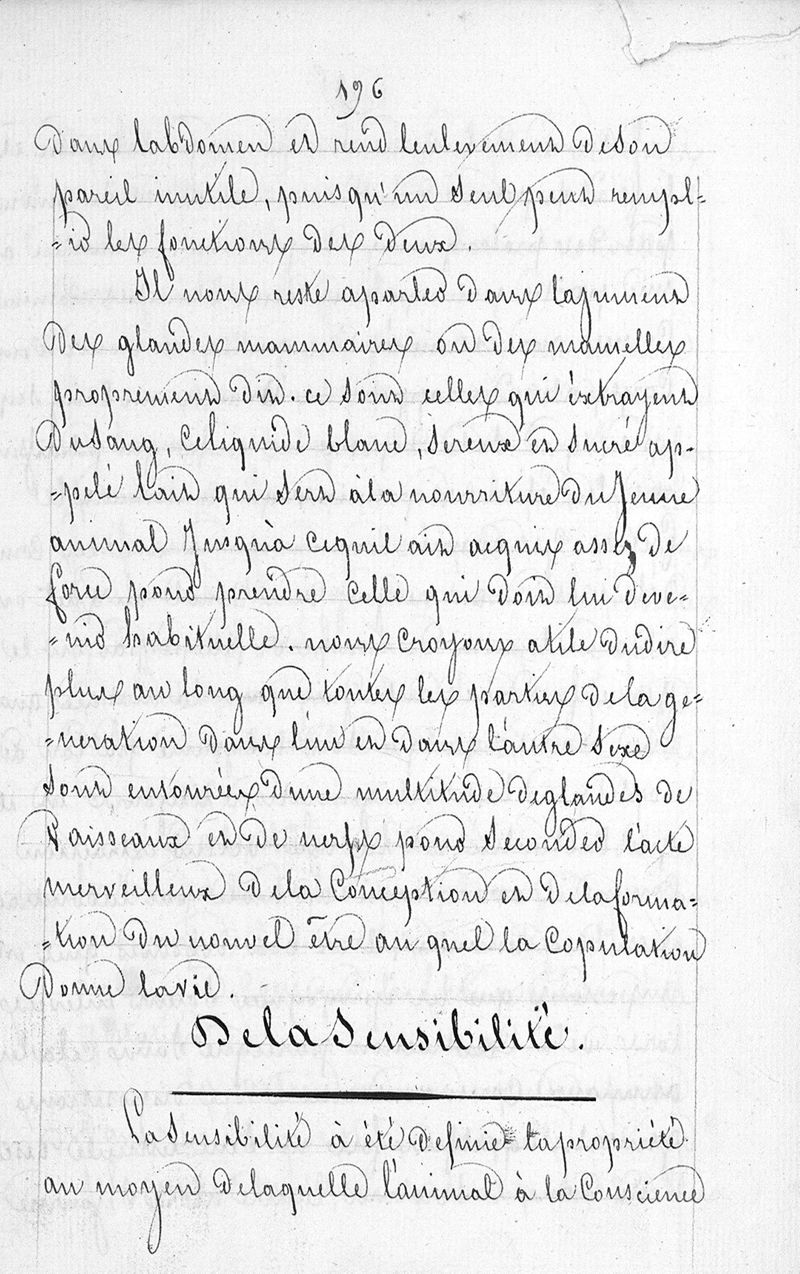 196
dans labdomen et rend lenlevement deson
pareil inutile, puisqu'un seul peut rempl=
=ir les fonctions des deux.
Il nous reste aparler dans lajument
des glandes mammaires ou des mamelles
proprement dit. ce sont celles qui éxtrayent
dusang, celiquide blanc, sereux et sucré ap-
=pelé lait qui sert àla nourriture du Jeune
animal Jusquà cequil ait acquis assez de
force pour prendre celle qui doit lui deve=
=nir habituelle. nous croyons utile dudire
plus au long que toutes les parties de la ge=
=neration dans l'un et dans l'autre Sexe
sont entourées dune multitude deglandes de
Vaisseaux et de nerfs pour seconder l'acte
merveilleux dela Conception et delaforma=
=tion du nouvel être au quel la Copulation
Donne lavie.
De la Sensibilité.
La Sensibilité à été definie lapropriété
au moyen delaquelle l'animal à la Conscience